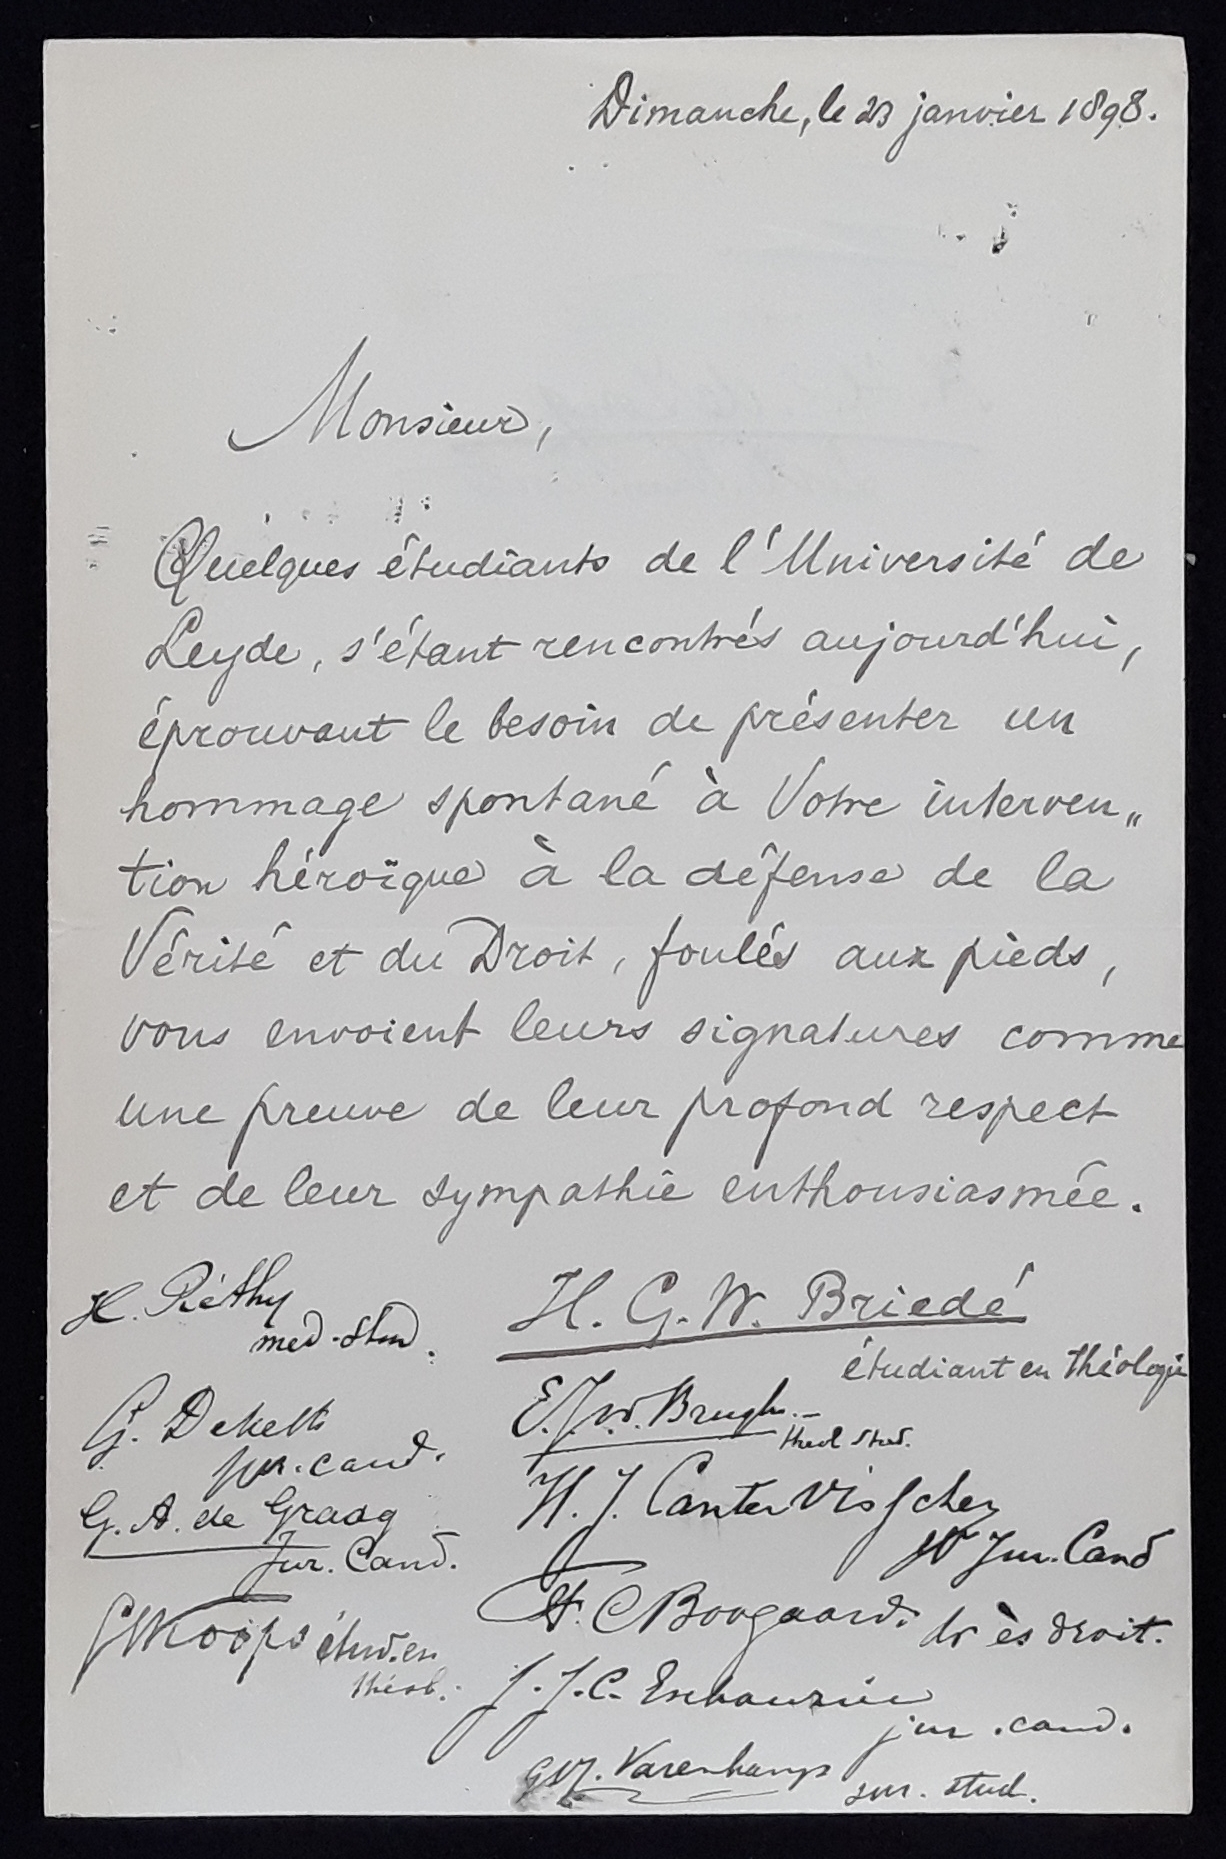 Dimanche, le 23 janvier 1898.
Monsieur,
Quelques étudiants de l'Université de
Leyde, s'étant rencontrés aujourd'hui,
éprouvant le besoin de présenter un
hommage spontané à Votre interven„
tion héroïque à la défense de la
Vérité et du Droit, foulés aux pieds,
vous envoient leurs signatures comme
une preuve de leur profond respect
et de leur sympathie enthousiasmée.
H. Réthy
med. stud.
H. G. W. Briedé
étudiant en théologie
G. Deketh
jur. cand.
E. J. v. d. Brugh.
theol stud.
G. A. de Graag
Jur. Cand.
H. J. Canter Visscher
Jur. Cand
Koops étud. en
théol.
H. C. Boogaard. dr ès droit.
J. J. C. Enschauzier
jur. cand.
Varenkamp
jur. stud.